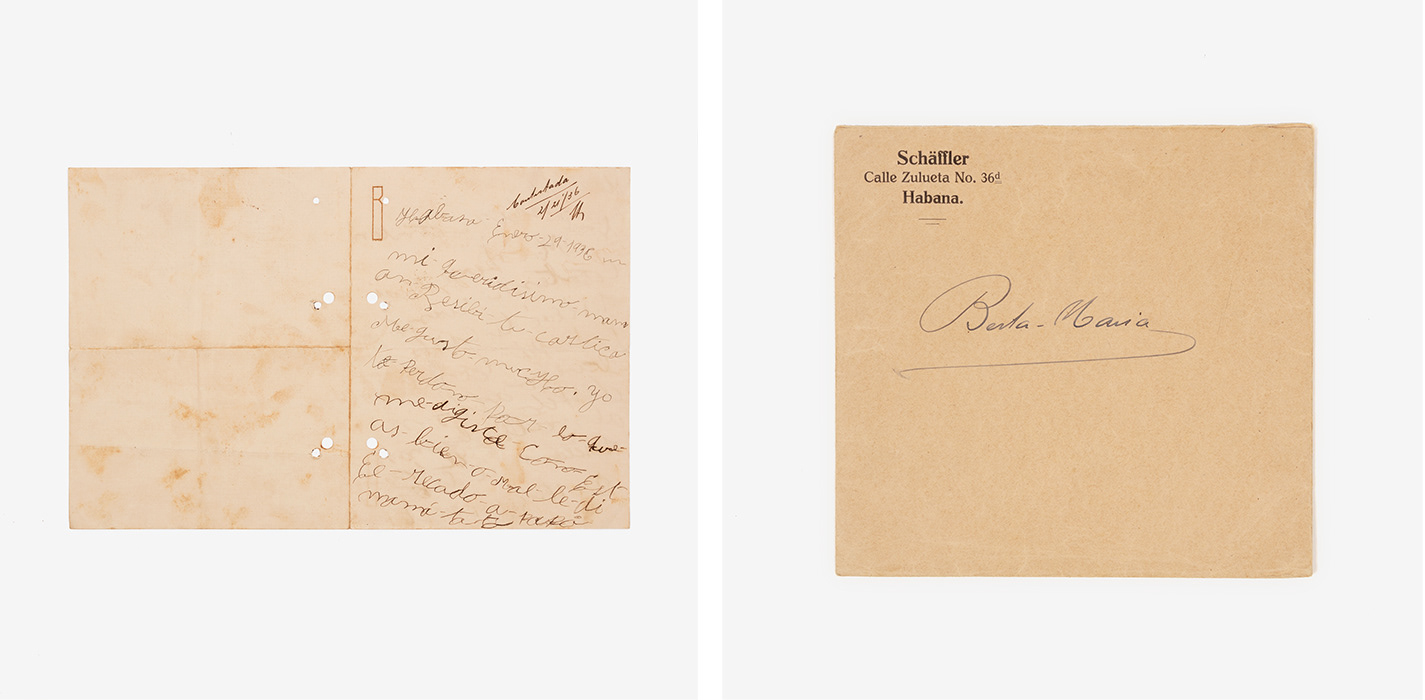 Contestada
2/4/36
Habana Enero-29-1936
mi queridisimo-mam
an Resibi-tu-cartica
Me-gusto-mucho. yo
te perdono por-lo-que
me-digiste Como-Est
as-bien-o-mal-le-di
El-recado-a-papá
mamá-ta
Schäffler
Calle Zulueta No. 36d
Habana.
Berta-Maria